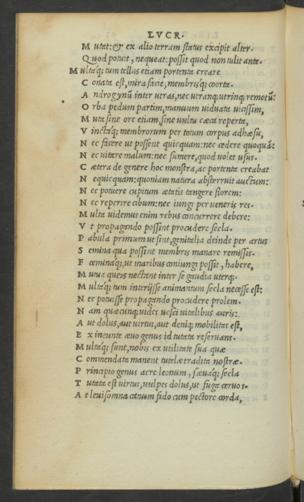 LVCR.
Mutat: & ex alio terram status excipit alter.
Quod potuit, nequeat: possit quod non tulit ante.
Multaq; tum tellus etiam portenta creare
Conata est, mira facie, membrisq; coorta.
Androgynū inter utras, nec utranq; utrinq; remotū:
Orba pedum partim, manuum viduata vicissim,
Muta sine ore etiam, sine vultu cæca reperta,
Vinctaq; membrorum per totum corpus adhæsu,
Nec facere ut possent quicquam: nec cedere quoquā:
Nec vitare malum: nec sumere, quod volet usus.
Cætera de genere hoc monstra, ac portenta creabat
Nequicquam: quoniam natura absterruit auctum:
Nec potuere cupitum ætatis tangere florem:
Nec reperire cibum: nec iungi per veneris res.
Multa videmus enim rebus concurrere debere:
Vt propagando possint procudere secla.
Pabula primum ut sint, genitalia deinde per artus
Semina qua possint membris manare remissis.
Fœminaq; ut maribus coniungi possit, habere,
Mutua queis nectant inter se gaudia uterq;.
Multaq; tum interiisse animantum secla necesse est:
Nec potuisse propagando procudere prolem.
Nam quæcunq; vides vesci vitalibus auris:
Aut dolus, aut virtus, aut deniq; mobilitas est,
Ex ineunte ævo genus id tutata reservans.
Multaq; sunt, nobis ex utilitate sua quæ
Commendata manent tutelæ tradita nostræ.
Principio genus acre leonum, sævaq; secla
Tutata est virtus, vulpes dolus, ut fuga cervos.
At levisomna canum fido cum pectore corda,